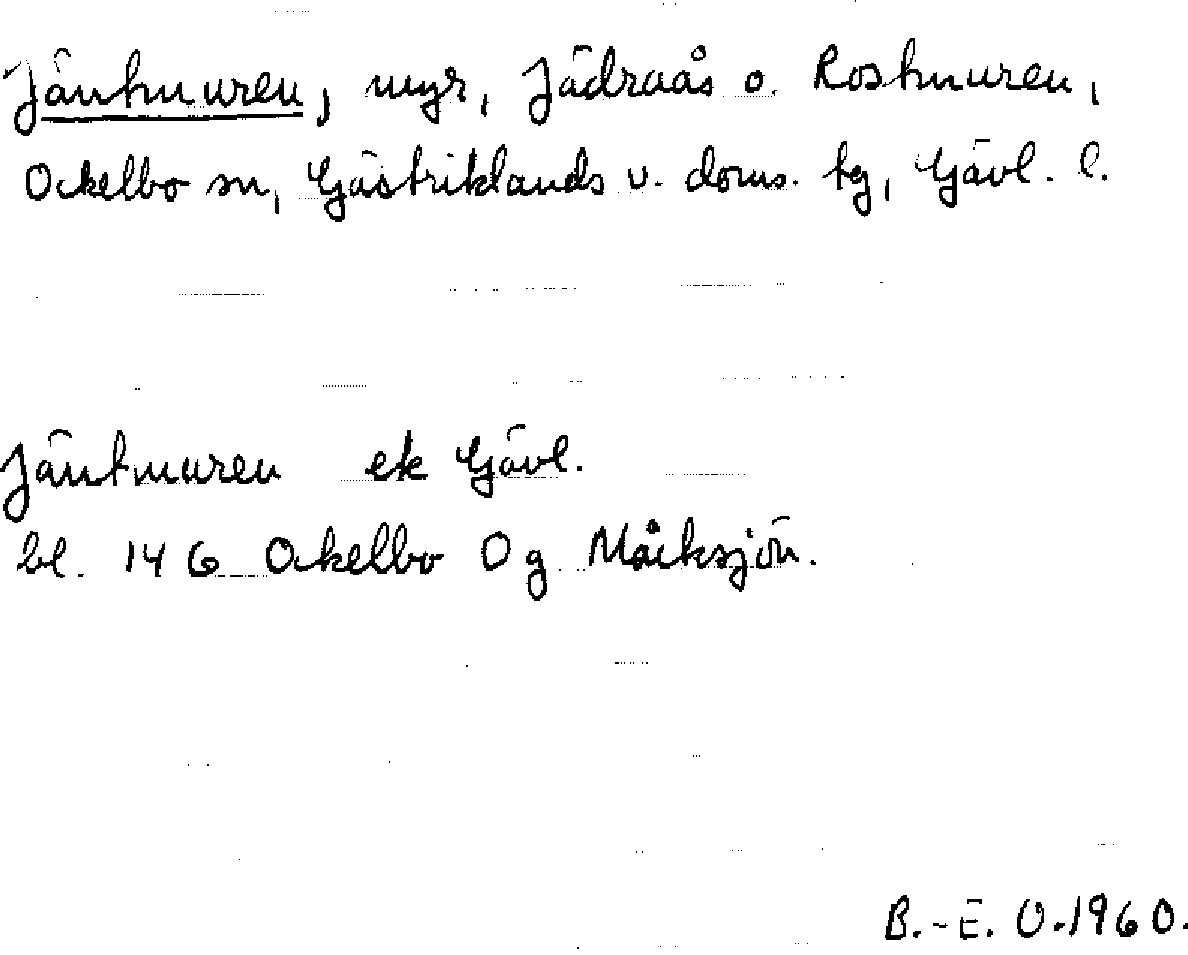 Jäntmuren, myr, Jädraås o. Roshmuren,
Ockelbo sn, Gästriklands v. doms. tg, Gävl. l.
Jäntmuren ek Gävl.
bl. 146 Ockelbo Og Måcksjön.
B.-E. O. 1960.